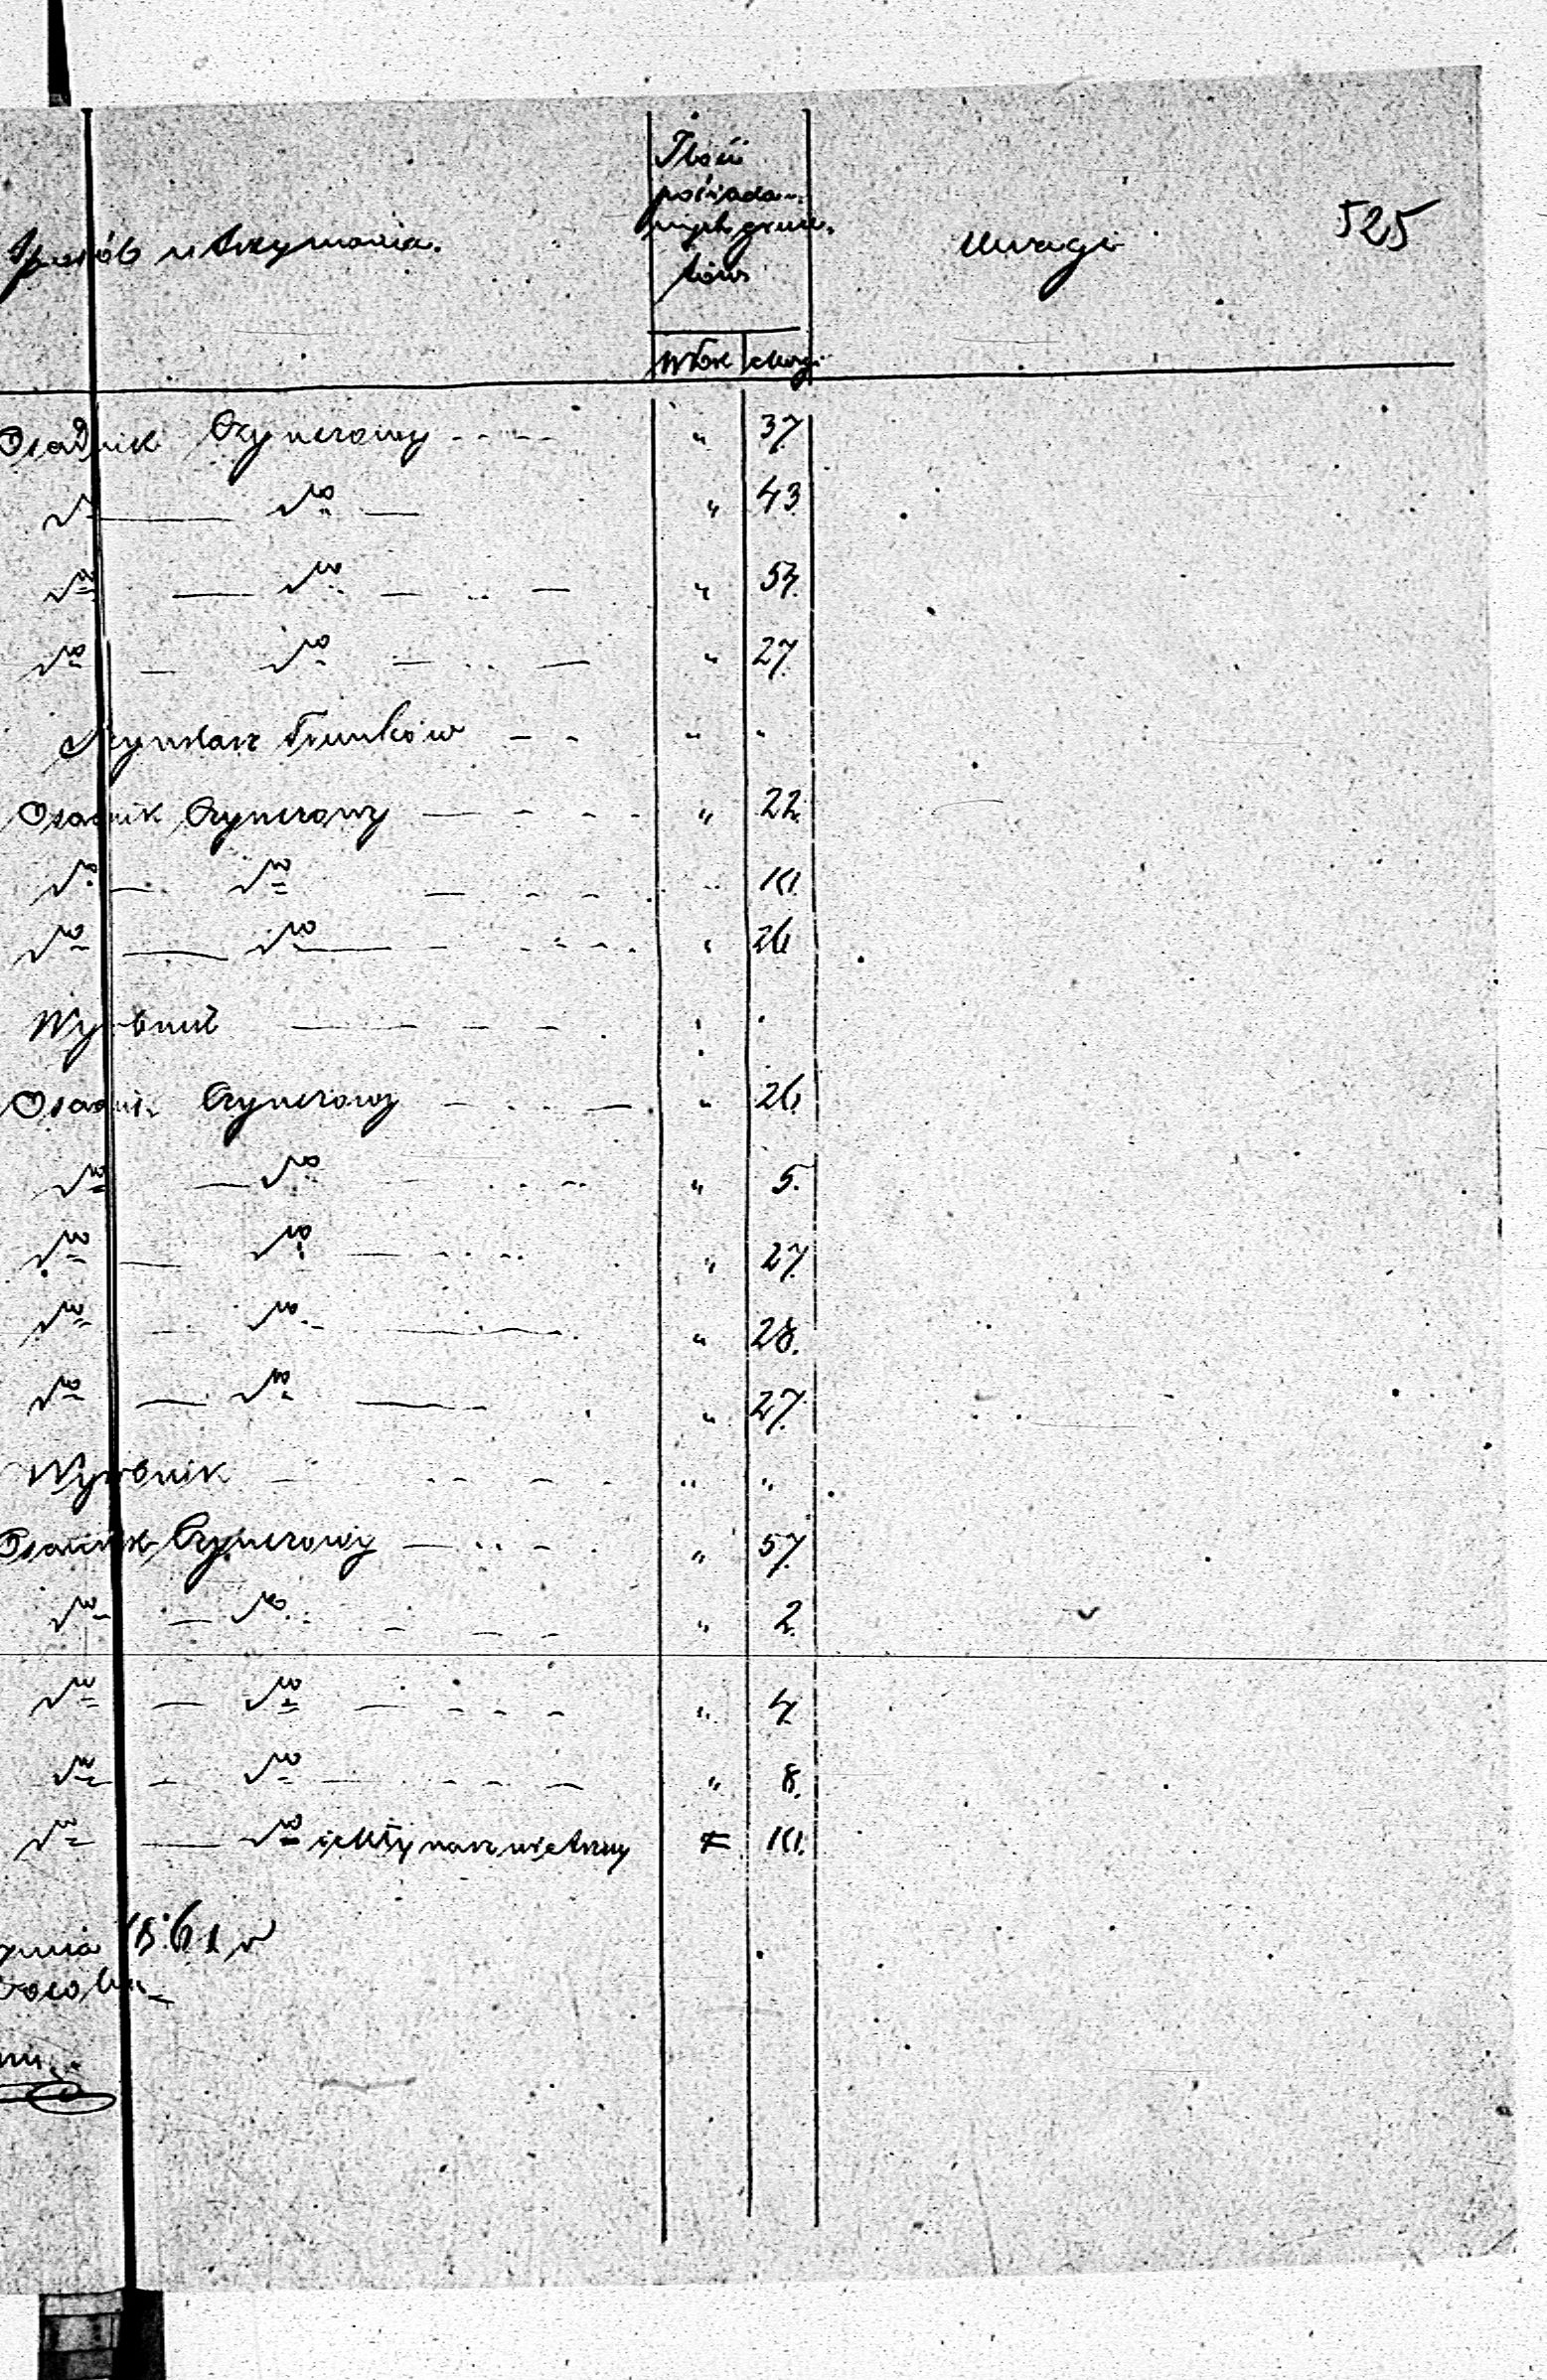 525
Sposób utrzymania.
Ilość
posiada-
nych grun-
tów
Uwagi
Włók Morgi
Osadnik Czynszowy - - - - " 37.
do do " 43.
do do " 54.
do do " 27.
Szynkarz Trunków - - " "
Osadnik Czynszowy - - - - " 22.
do do " 10.
do do " 26
Wyrobnik - - - " "
Osadnik Czynszowy - - - " 26.
do do " 5.
do do " 27.
do do " 28.
do do " 27.
Wyrobnik - - - " "
Osadnik Czynszowy - - - " 57.
do do " 2.
do do " 4.
do do " 8.
do do i Młynarz wietrzny = 10.
1861 r